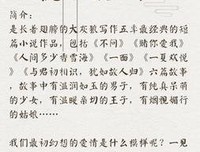 简介：
是长着翅膀的大灰狼写作五年最经典的短
篇小说作品，包括《不问》《赌你爱我》
《人间多少青雪海》《一面》《一夏欢悦
》《与君初相识，犹如故人归》六篇故事
，故事中有温润如玉的男子，有纯真呆萌
的少女，有温暖亲切的王子，有烟视媚行
的姑娘……
我们最初幻想的爱情是什么模样呢？一见